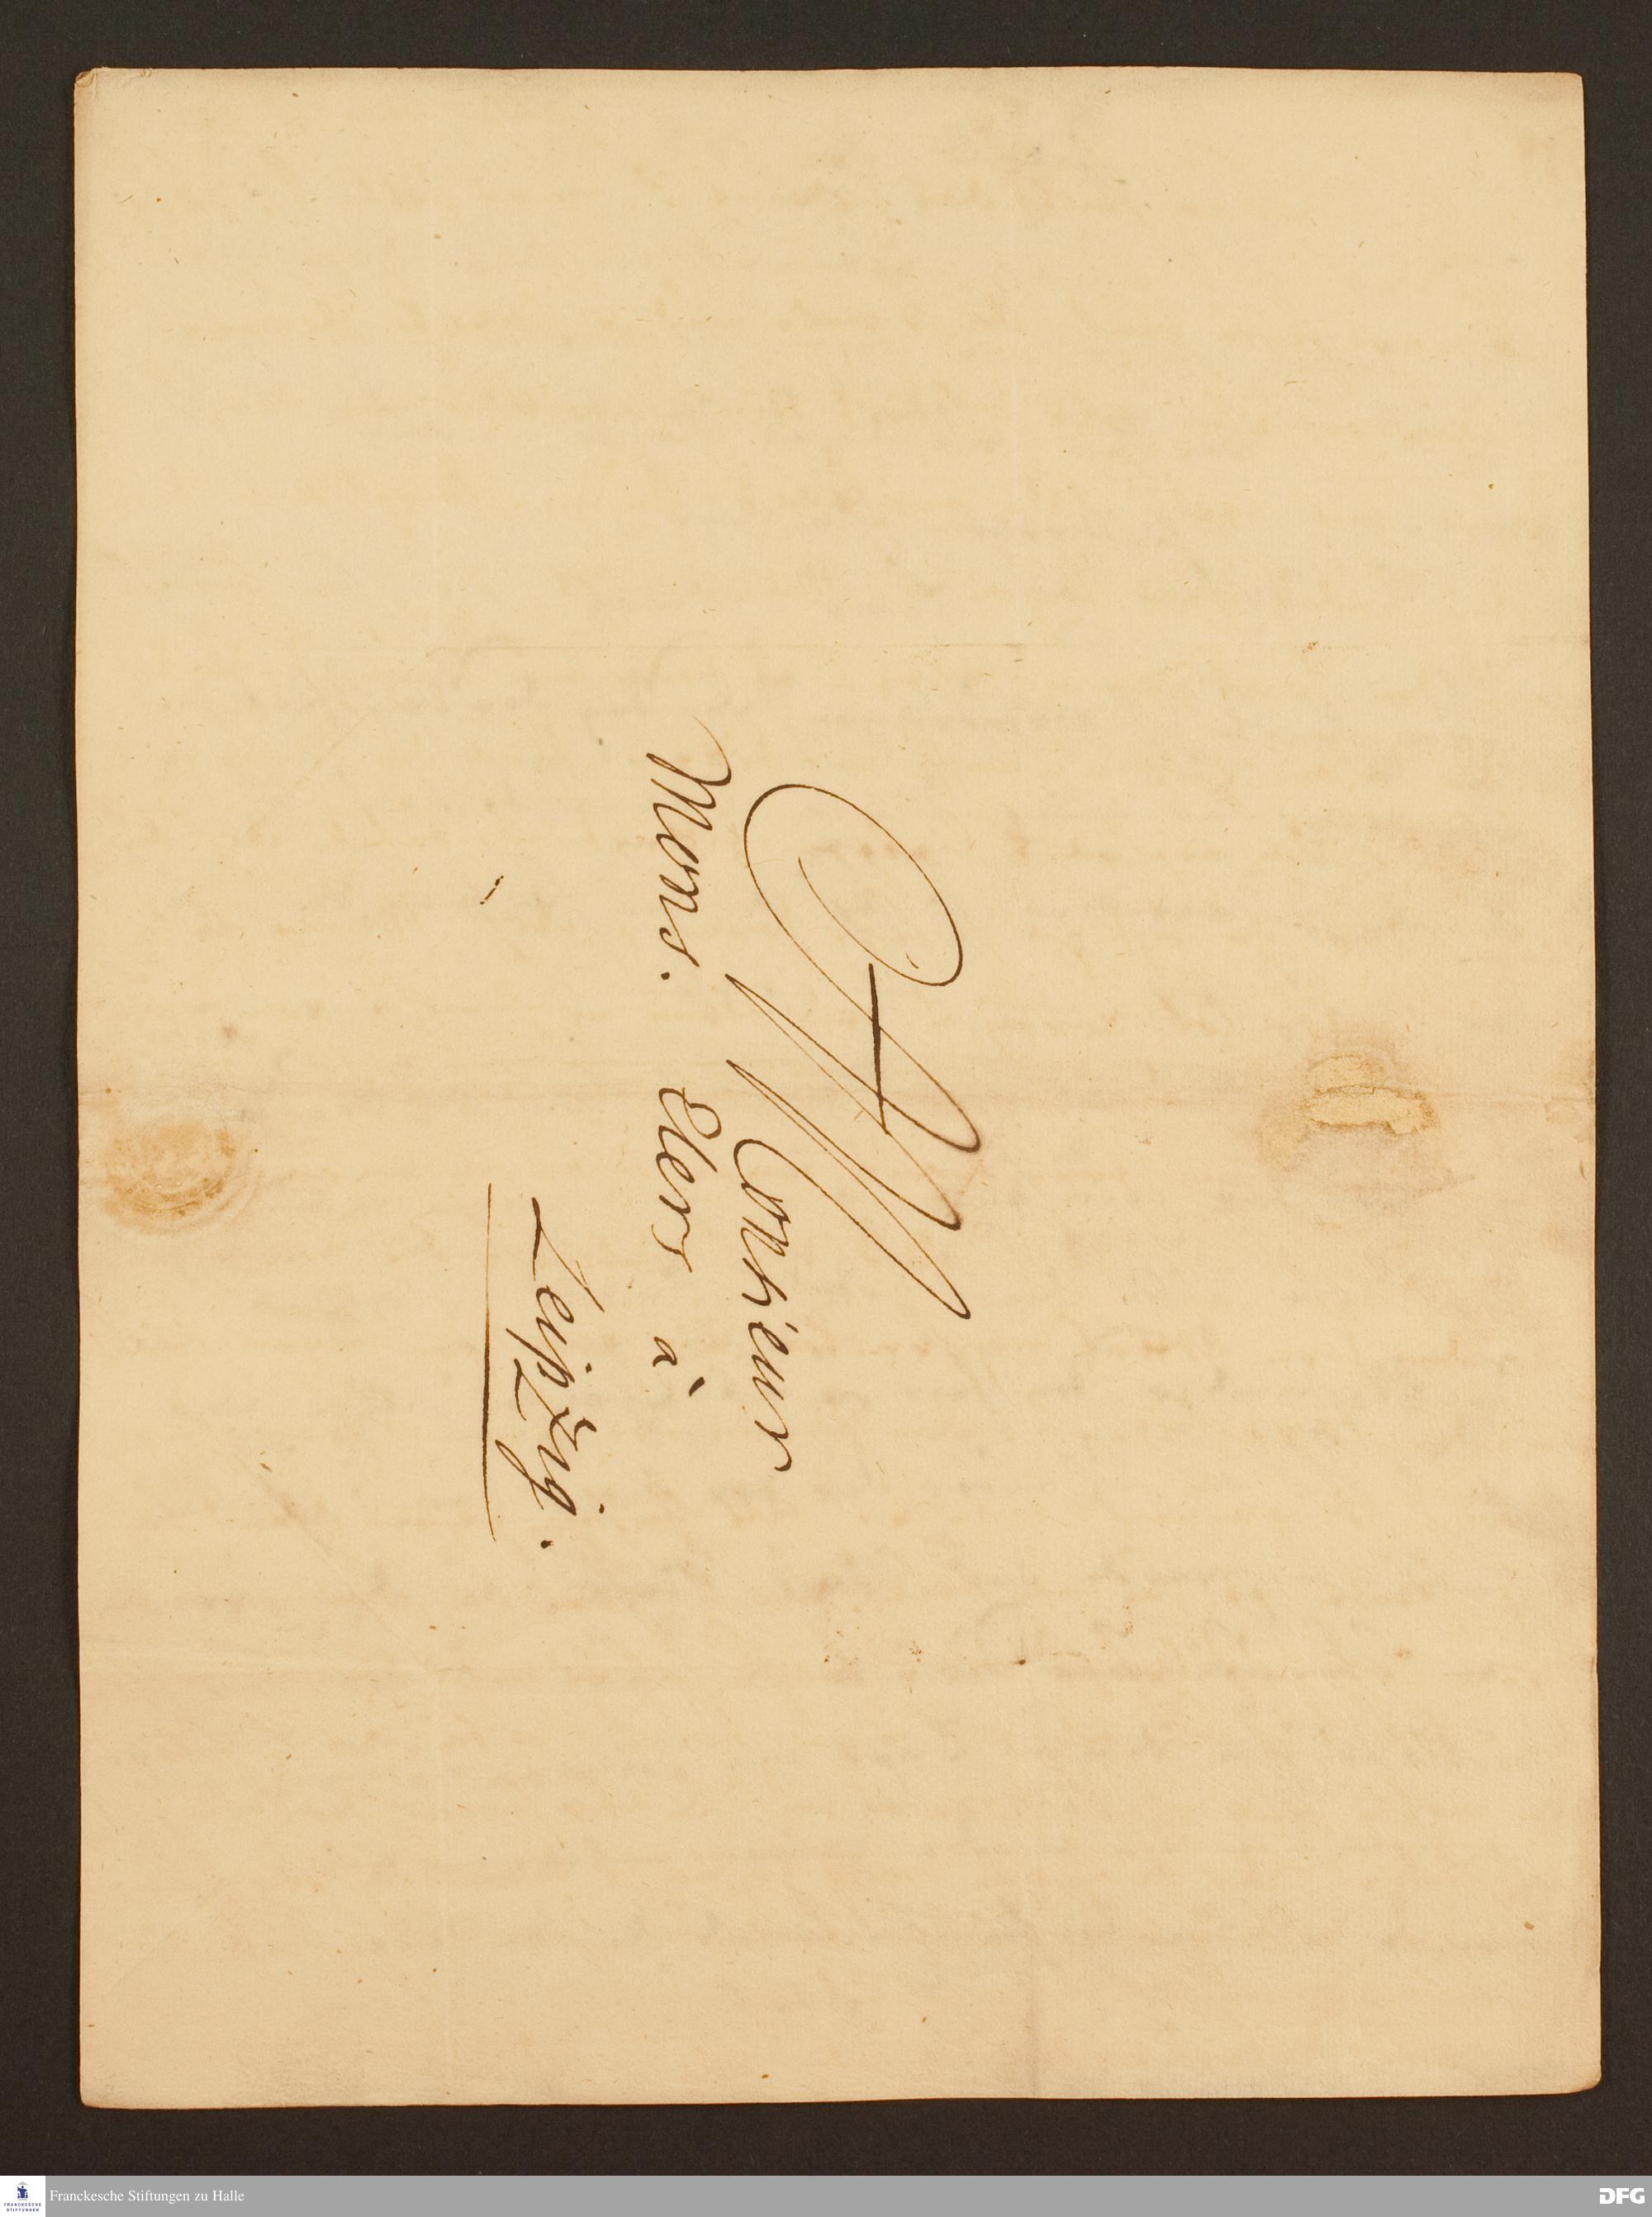 Monsieur
Mons. Elers à
Leipzig.
Franckesche Stiftungen zu Halle
FRANCKESCHE
STIFTUNGEN
DFG